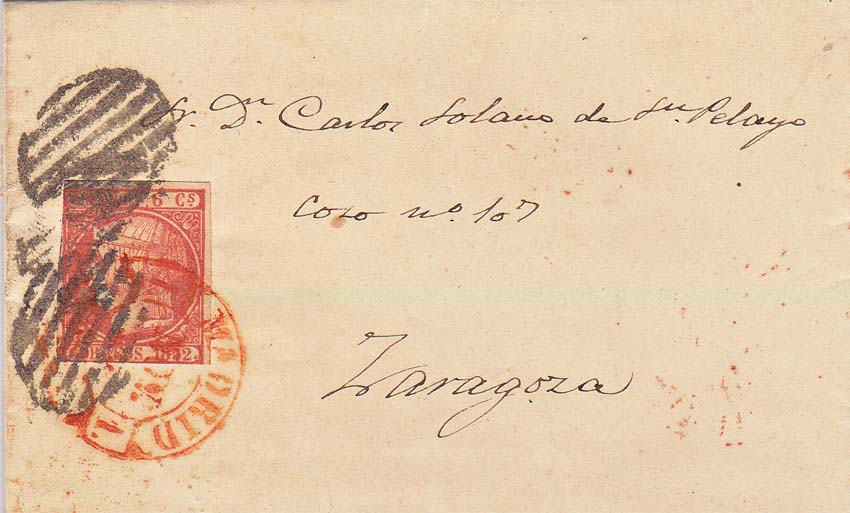 Sr. Dn. Carlos Solano de Sn. Pelayo
Coso no. 107
Zaragoza
6 Cs
1852.
MADRID